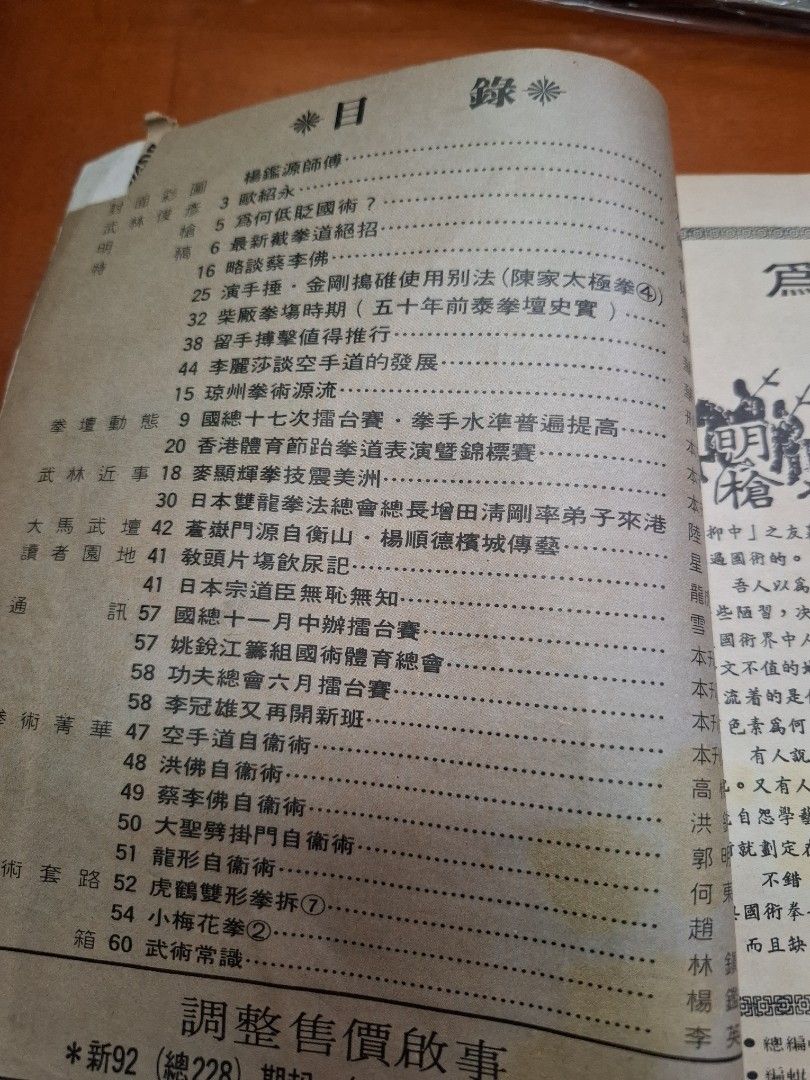 目 錄
封面彩圖 楊鑑源師傅
武林俊彥 3 歐紹永
明 槍 5 為何低貶國術？
特 稿 6 最新截拳道絕招
16 略談蔡李佛
25 演手捶·金剛搗碓使用別法(陳家太極拳④)
32 柴厰拳塲時期（五十年前泰拳壇史實）
38 留手搏擊值得推行
44 李麗莎談空手道的發展
15 琼州拳術源流
拳壇動態 9 國總十七次擂台賽·拳手水準普遍提高
20 香港體育節跆拳道表演暨錦標賽
武林近事 18 麥顯輝拳技震美洲
30 日本雙龍拳法總會總長增田清剛率弟子來港
大馬武壇 42 蒼嶽門源自衡山·楊順德檳城傳藝
讀者園地 41 教頭片塲飲尿記
41 日本宗道臣無恥無知
通 訊 57 國總十一月中辦擂台賽
57 姚銳江籌組國術體育總會
58 功夫總會六月擂台賽
58 李冠雄又再開新班
術菁華 47 空手道自衞術
48 洪佛自衞術
49 蔡李佛自衞術
50 大聖劈掛門自衞術
51 龍形自衞術
術套路 52 虎鶴雙形拳拆⑦
54 小梅花拳②
箱 60 武術常識
調整售價啟事
*新92（總228）期起
陸
星
龍
雪
本刊
本刊
本刊
本刊
高
洪
郭
何
趙
林
楊
李英
為
明
槍
抑中」之友
過國術的。
吾人以為
些陋習，次
國術界中人
文不值的
流着的是
色素為何
有人說
。又有人
自怨學藝
就劃定
不錯
國術拳
而且缺
●總編
●編輯